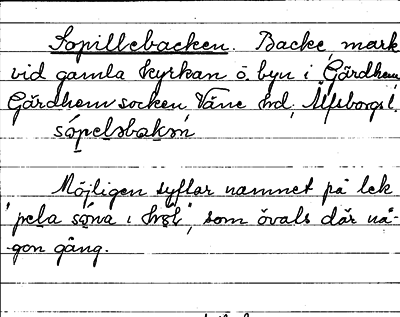 Sopillebacken. Backe, mark
vid gamla kyrkan ö. byn i Gärdhem,
Gärdhem socken Väne hd, Älfsborgs l.
sópelsbakɜn
Möjligen syftar namnet på lek
'pela sǿna i hǿl', som övats där nå-
gon gång.